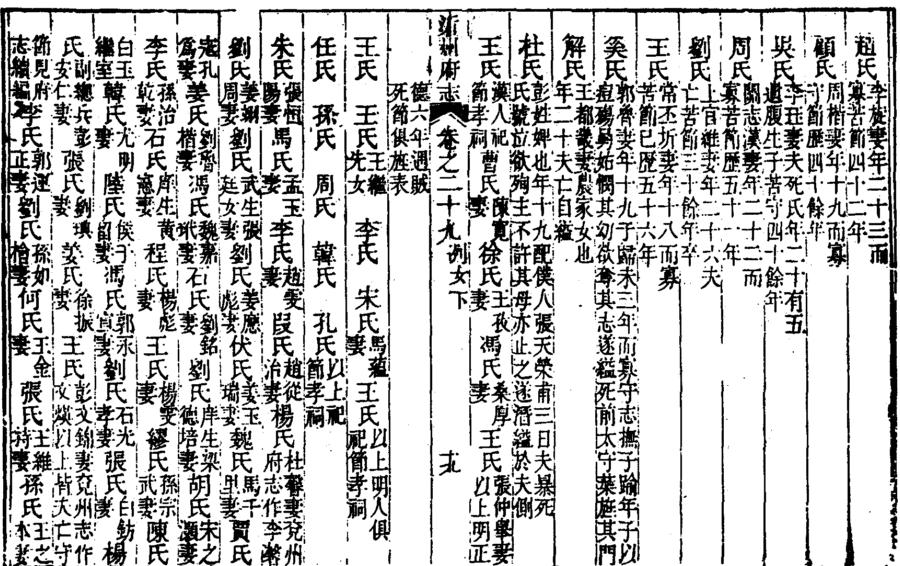 趙氏 李旋妻年二十三而寡苦節四十二年
顧氏 周楷妻年十九而寡守節歷四十餘年
吳氏 李玨妻夫死氏年二十有五遺腹生子苦守四十餘年
周氏 關志漢妻年二十二而寡苦節歷五十一年
劉氏 上官維妻年二十六夫亡苦節三十餘年卒
王氏 常丕圻妻年十八而寡苦節已歷五十六年
奚氏 郭齊妻年十九于歸未三年而寡守志撫子踰年子以痘殤舅姑憫其幼欲奪其志遂縊死前太守葉旌其門
解氏 王都畿妻農家女也年二十夫亡自縊
杜氏 彭姓婢也年十九配僕人張天榮甫三日夫暴死氏號泣欲殉主不許其母亦止之遂潛縊於夫側
王氏 漢人祀節孝祠 曹氏 陳寬妻 徐氏 王孜妻 馮氏 秦厚妻 王氏 張仲舉妻以上明正
沂州府志 卷之二十九 列女下 十九
德六年遇賊死節俱旌表
王氏 王氏 王繼先女 李氏 宋氏 馬蘊妻 王氏 以上明人俱祀節孝祠
任氏 孫氏 周氏 韓氏 孔氏 以上祀節孝祠
朱氏 張恒陽妻 馬氏 孟玉妻 李氏 趙雯妻 段氏 趙從治妻 楊氏 杜馨妻兗州府志作李
劉氏 姜周妻 劉氏 武生張廷女妻 劉氏 姜應彪妻 伏氏 姜玉瑞妻 魏氏 馬千里妻 賈氏
寇孔為妻 姜氏 劉楷妻 馮氏 魏嘉妻 石氏 劉銘妻 劉氏 庠生梁德培妻 胡氏 宋之灝妻
李氏 孫治乾妻 石氏 庠生黃憲妻 程氏 楊彪妻 王氏 楊雯妻 繆氏 孫宗武妻 陳氏
白玉繼室 韓氏 尤明妻 陸氏 侯于妻 馮氏 郭永宣妻 劉氏 石光孝妻 張氏 白鈁妻 楊
氏 副總兵彭安仁妻 張氏 劉琪妻 姜氏 徐振妻 王氏 彭文錦妻兗州志作文煐以上皆夫亡守
節見府志續編 李氏 郭運正妻 劉氏 孫如檜妻 何氏 王金妻 張氏 王維持妻 孫氏 王之本妻